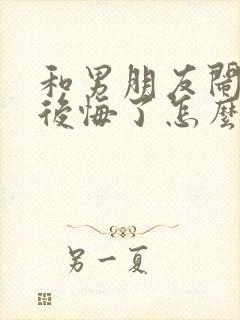 和男朋友鬧
後悔了怎麼
另一夏